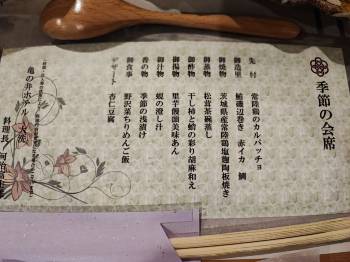 季節の会席
先付 常陸鶏のカルパッチョ
御造里 鮪磯辺巻き 赤イカ 鯛
御焼物 茨城県産常陸鶏塩麹陶板焼き
御蒸物 松茸茶碗蒸し
御酢物 干し柿と蛸の彩り胡麻和え
御揚物 里芋饅頭美味あん
御汁物 蜆の澄し汁
香の物 季節の浅漬け
御食事 野沢菜ちりめんご飯
デザート 杏仁豆腐
亀の井ホテル 大洗
料理長